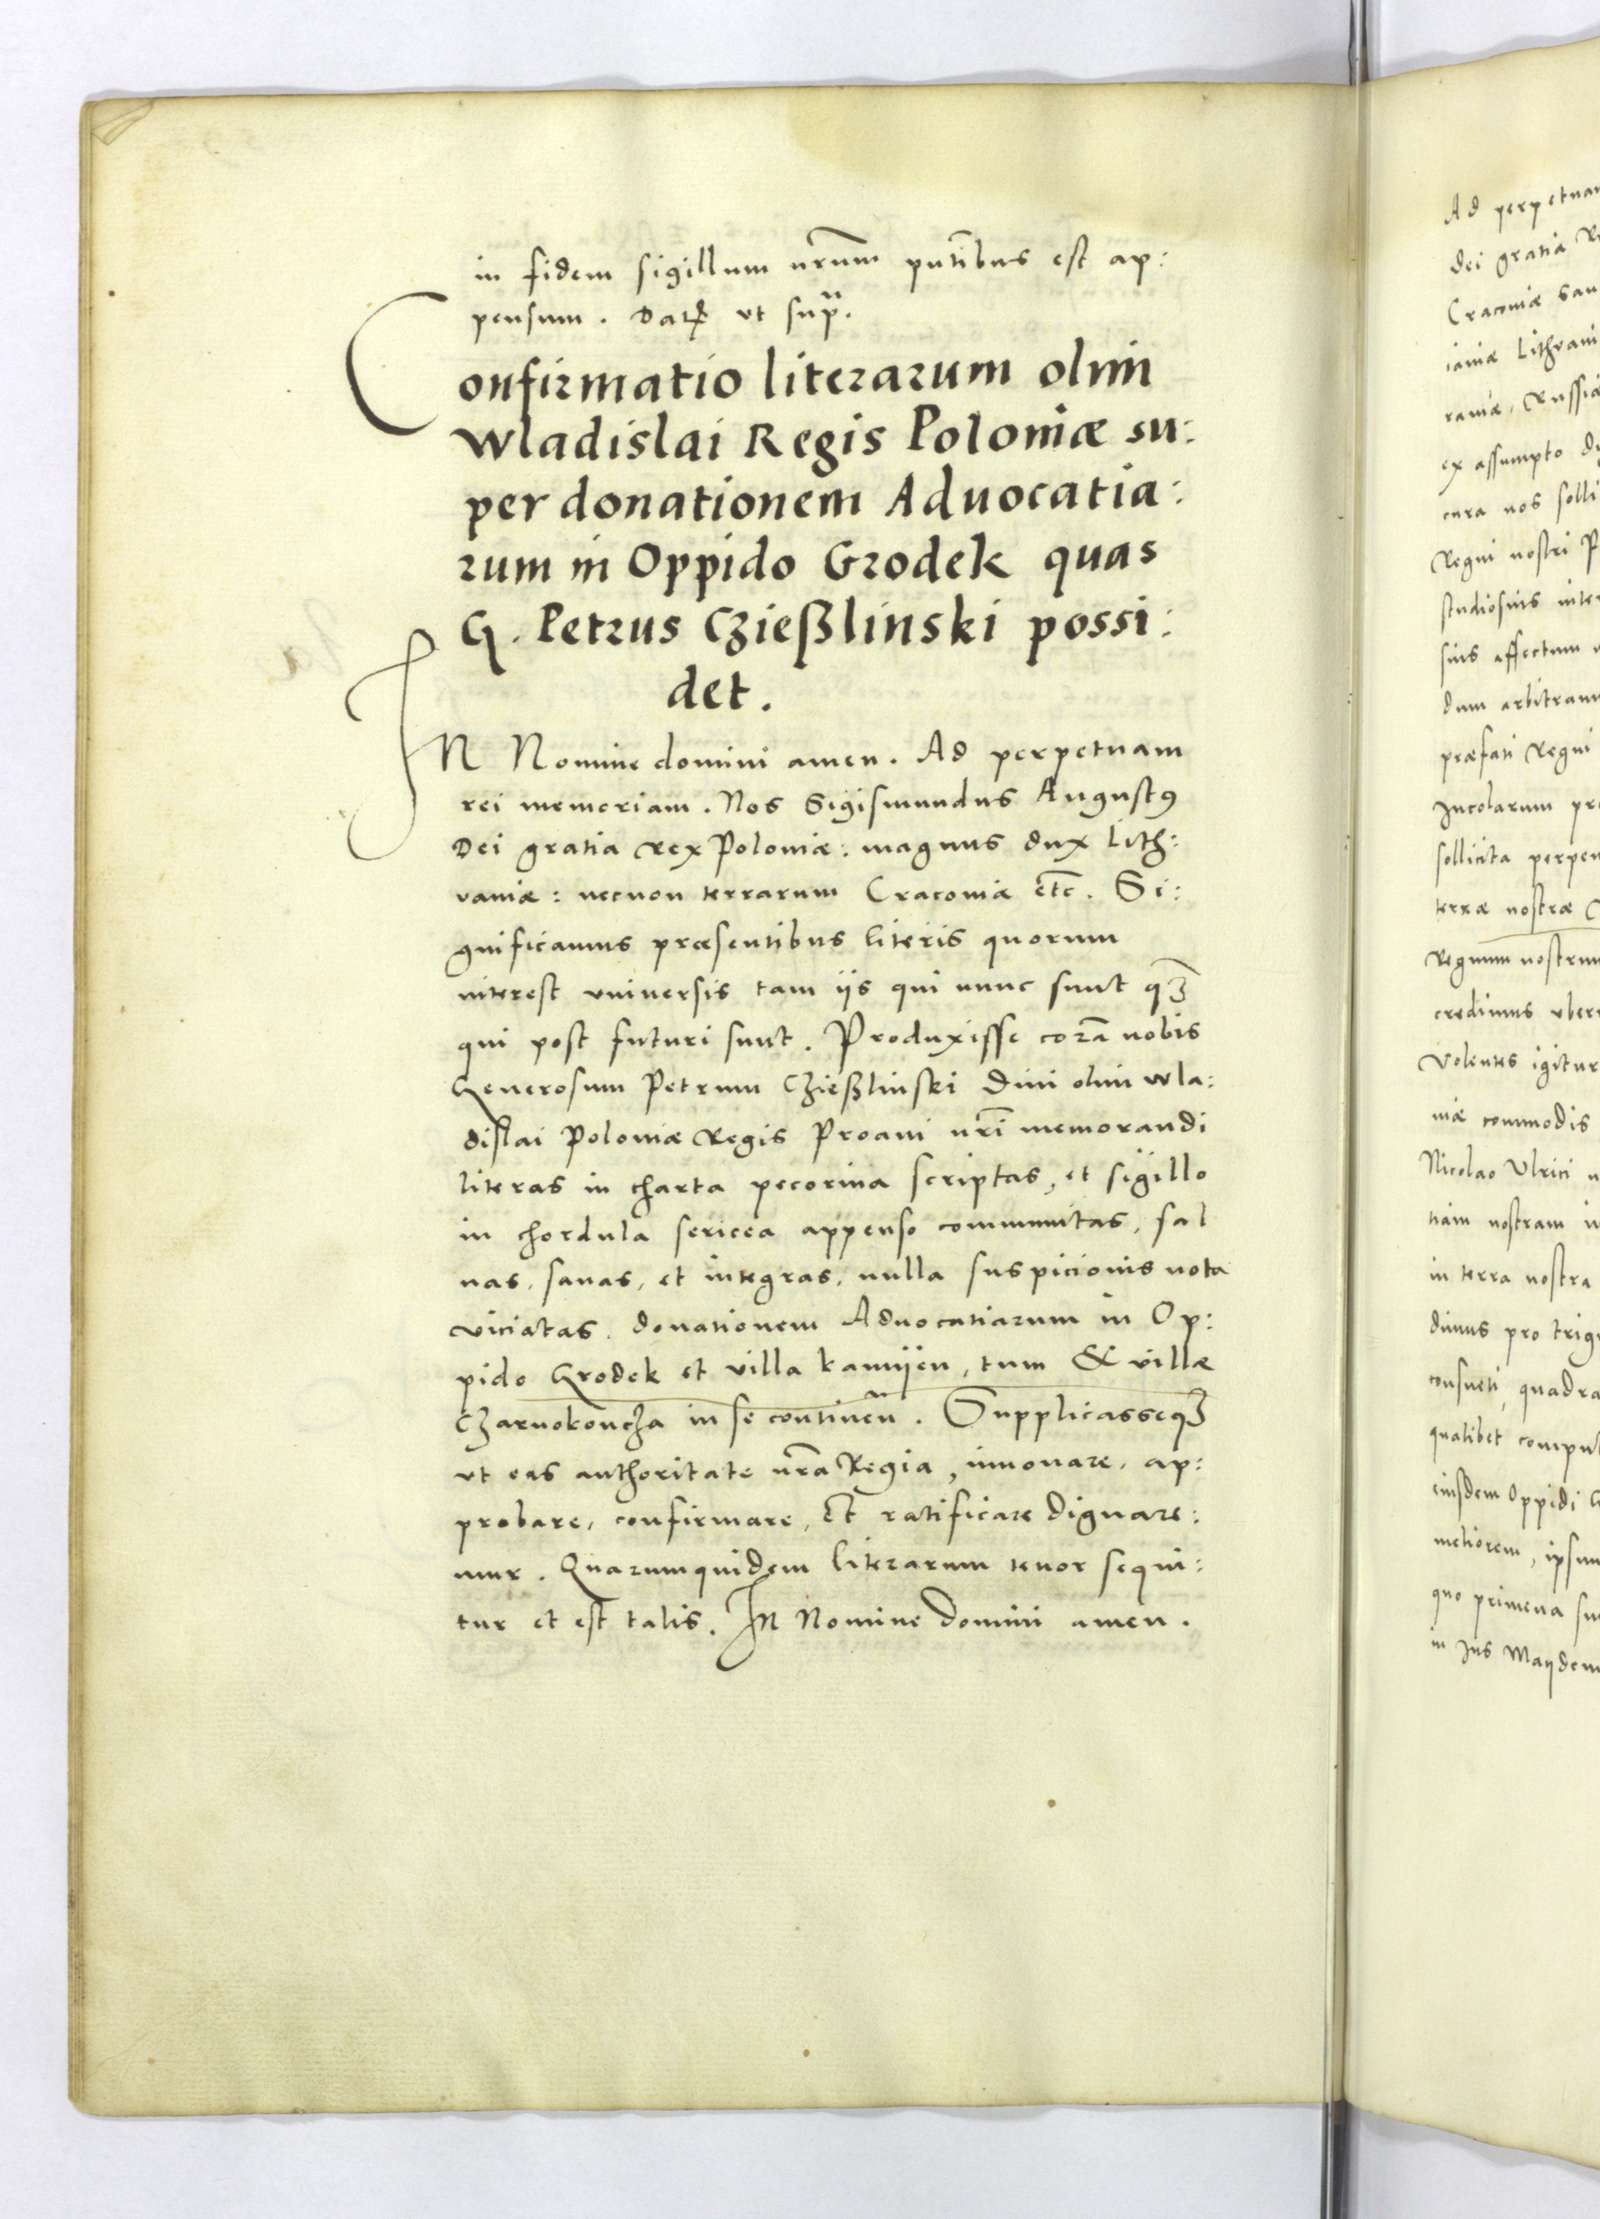 in fidem sigillum nrum̄ pntibus̄ est ap:
pensum. Datꝶ vt supr̄.
Confirmatio literarum olim
Wladislai Regis Poloniæ su:
per donationem Aduocatia:
rum in Oppido Grodek quas
G. Petrus Czießlinski possi:
det.
IN Nomine domini amen. Ad perpetuam
rei memoriam. Nos Sigismundus Augustꝰ
Dei gratia Rex Poloniæ: magnus dux Lith:
vaniæ: necnon terrarum Cracoviæ etc̄. Si:
gnificamus præsentibus literis quorum
interest vniuersis tam ijs qui nunc sunt qꝫ̄
qui post futuri sunt. Produxisse corā nobis
Generosum Petrum Czießlinski Diui olim Wla:
dislai Poloniæ Regis Proaui nrī memorandi
literas in charta pecorina scriptas, et sigillo
in chordula sericea appenso communitas, sal
uas, sanas, et integras, nulla suspicionis nota
viciatas, donationem Aduocatiarum in Op:
pido Grodek et villa kamijen, tum & villæ
Czarnokoncza in se continen̄. Supplicasseqꝫ
vt eas authoritate nrā Regia, innouare, ap:
probare, confirmare, Et ratificare dignare:
mur. Quarumquidem literarum tenor sequi:
tur et est talis. In Nomine Domini amen.
Ad perpetuam
Dei gratia
Cracoviæ San
iaviæ Lithvani
raniæ, Russiæ
ex assumpto
cura nos solli
Regni nostri
studiosius inter
suis affectum
dum arbitramu
præfati Regni
Incolarum pro
sollicita perpen
terræ nostræ
Regnum nostrum
credimus vberi
Volentes igitur
niæ commodis
Nicolao Vlrici
tiam nostram
in terra nostra
dimus pro trigi
consueti, quadra
qualibet comput
eiusdem Oppidi
meliorem, ipsum
quo primeua
in Jus Maijdem